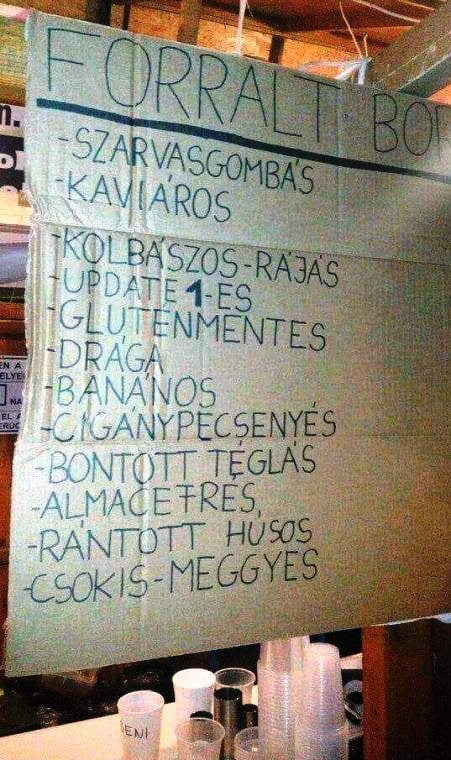 FORRALT BOR
-SZARVASGOMBÁS
-KAVIÁROS
-KOLBÁSZOS-RÁJÁS
-UPDATE 1-ES
-GLUTÉNMENTES
-DRÁGA
-BANÁNOS
-CIGÁNYPECSENYÉS
-BONTOTT TÉGLÁS
-ALMACEFRÉS,
-RÁNTOTT HÚSOS
-CSOKIS-MEGGYES